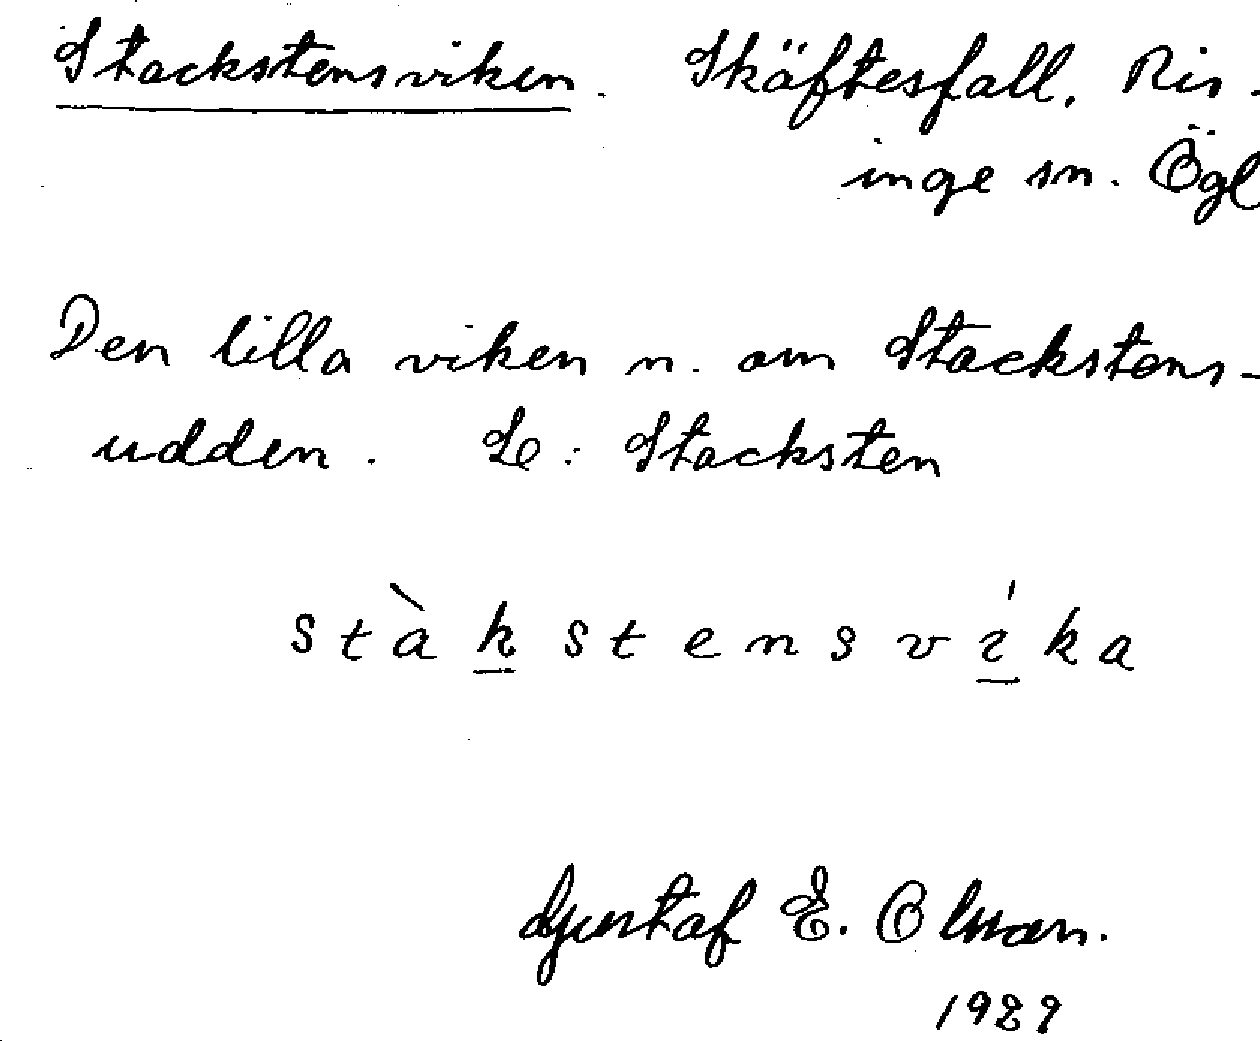 Stackstensviken. Skäftesfall. Ris-
inge sn. Ögl
Den lilla viken n. om Stackstens-
udden. Se: Stacksten
stàkstensvíka
Gustaf E. Olsson.
1929